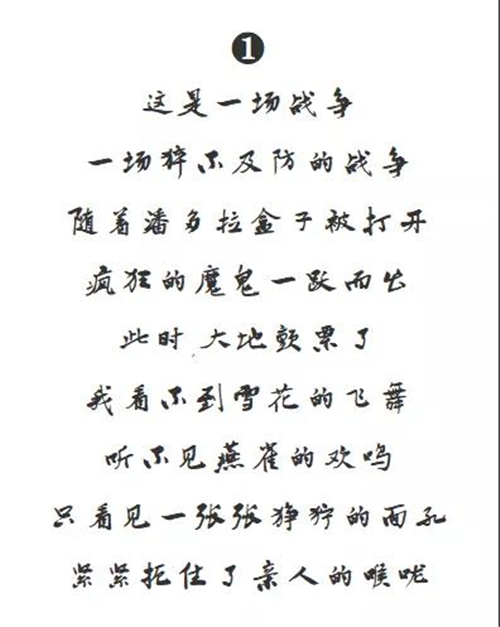 ❶
这是一场战争
一场猝不及防的战争
随着潘多拉盒子被打开
疯狂的魔鬼一跃而出
此时,大地颤栗了
我看不到雪花的飞舞
听不见燕雀的欢鸣
只看见一张张狰狞的面孔
紧紧扼住了亲人的喉咙